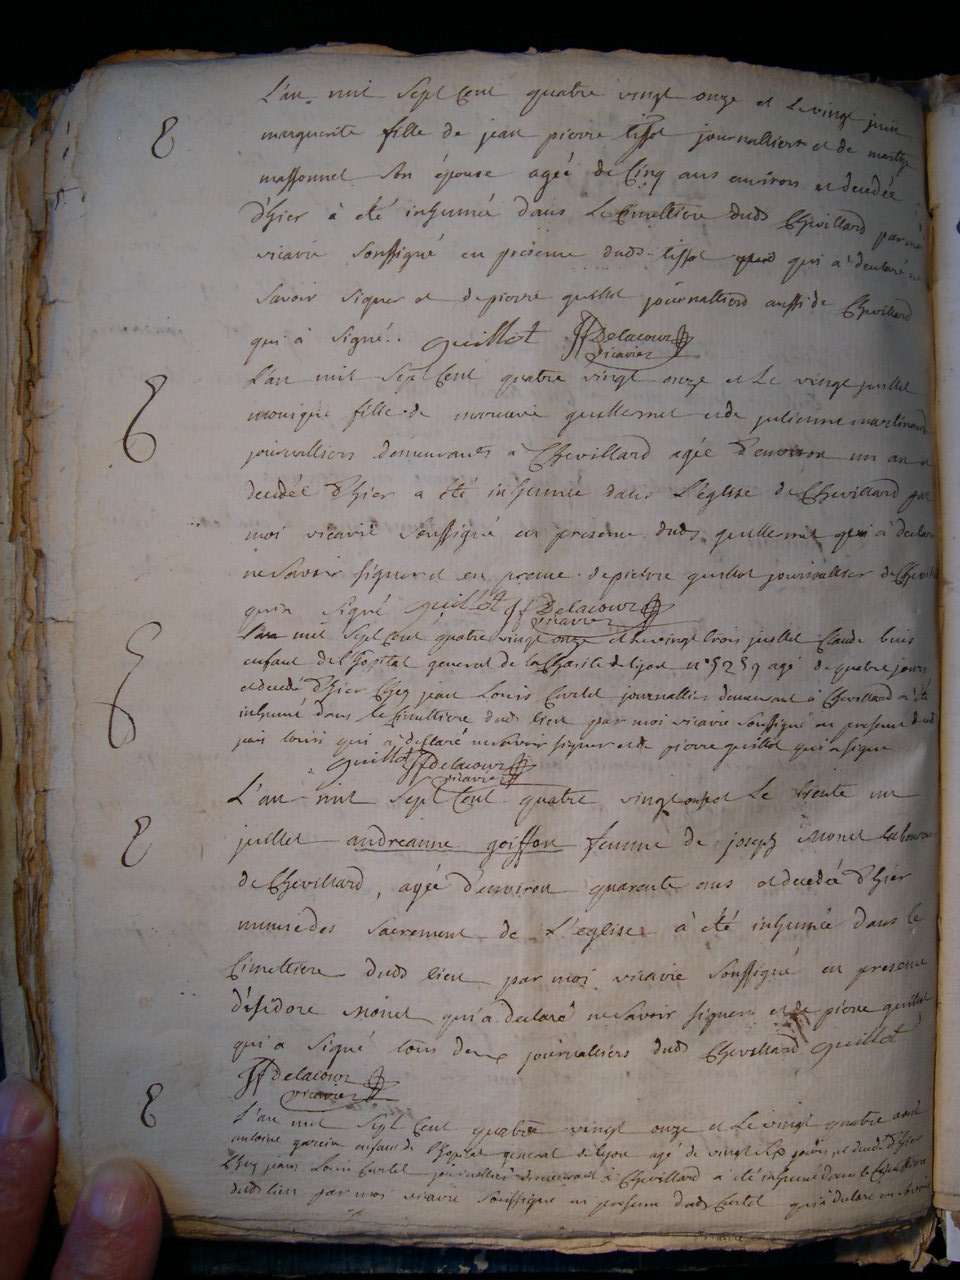 L'an mil sept Cent quatre vingt onze et Le vingt juin
marguerite fille de jean pierre tissot journalliers et de marthe
massonnet son épouse agéé de Cinq ans environ et decedée
d'hier à été inhumée dans Le Cimettiere dudt Chevillard par moi
vicaire soussigné en présence dudt tissot qui a declaré ne
savoir signer et de pierre guillot journalliers aussi de Chevillard
qui à signé. guillot JfDelacour
vicaire
L'an mil sept Cent quatre vingt onze et Le vingt juillet
monique fille de guillermet et de julienne martinand
journalliers demeurants à Chevillard agée d'environ un an et
decedée d'hier a été inhumée dans L'église de Chevillard par
moi vicaire soussigné en presence dudt guillermet qui à declaré
ne savoir signer et en presence de pierre guillot journallier de Chevillard
qui a signé guillot JfDelacour
vicaire
L'an mil sept Cent quatre vingt onze et le vingt trois juillet Claude buis
enfant de l'hopital general de la Charité de lyon n° 5259 agé de quatre jours
et decedé d'hier Chez jean Louis Curtet journallier demeurant à Chevillard a été
inhumé dans le Cimettiere dudt lieu par moi vicaire soussigné en presence dudt
jean louis qui a declaré ne savoir signer et de pierre guillot qui a signé
guillot JfDelacour
vicaire
L'an mil sept Cent quatre vingt onze et Le trente un
juillet andréanne goiffon femme de joseph Monet laboureur
de Chevillard, agée d'environ quarante ans et decedée d'hier
munie des sacrement de L'eglise à été inhumée dans le
Cimettiere dudt lieu par moi vicaire soussigné en presence
d'isidore Monet qui a declaré ne savoir signer et de pierre guillot
qui a signé tous deux journalliers dudt Chevillard guillot
JfDelacour
vicaire
L'an mil sept Cent quatre vingt onze et Le vingt quatre aout
antoine garcin enfant de l'hopital general de lyon agé de vingt six jours et decedé d'hier
Chez jean Louis Curtet journallier demeurant à Chevillard a été inhumé dans le Cimettiere
dudt lieu par moi vicaire soussigné en presence dudt Curtet qui a declaré ne savoir